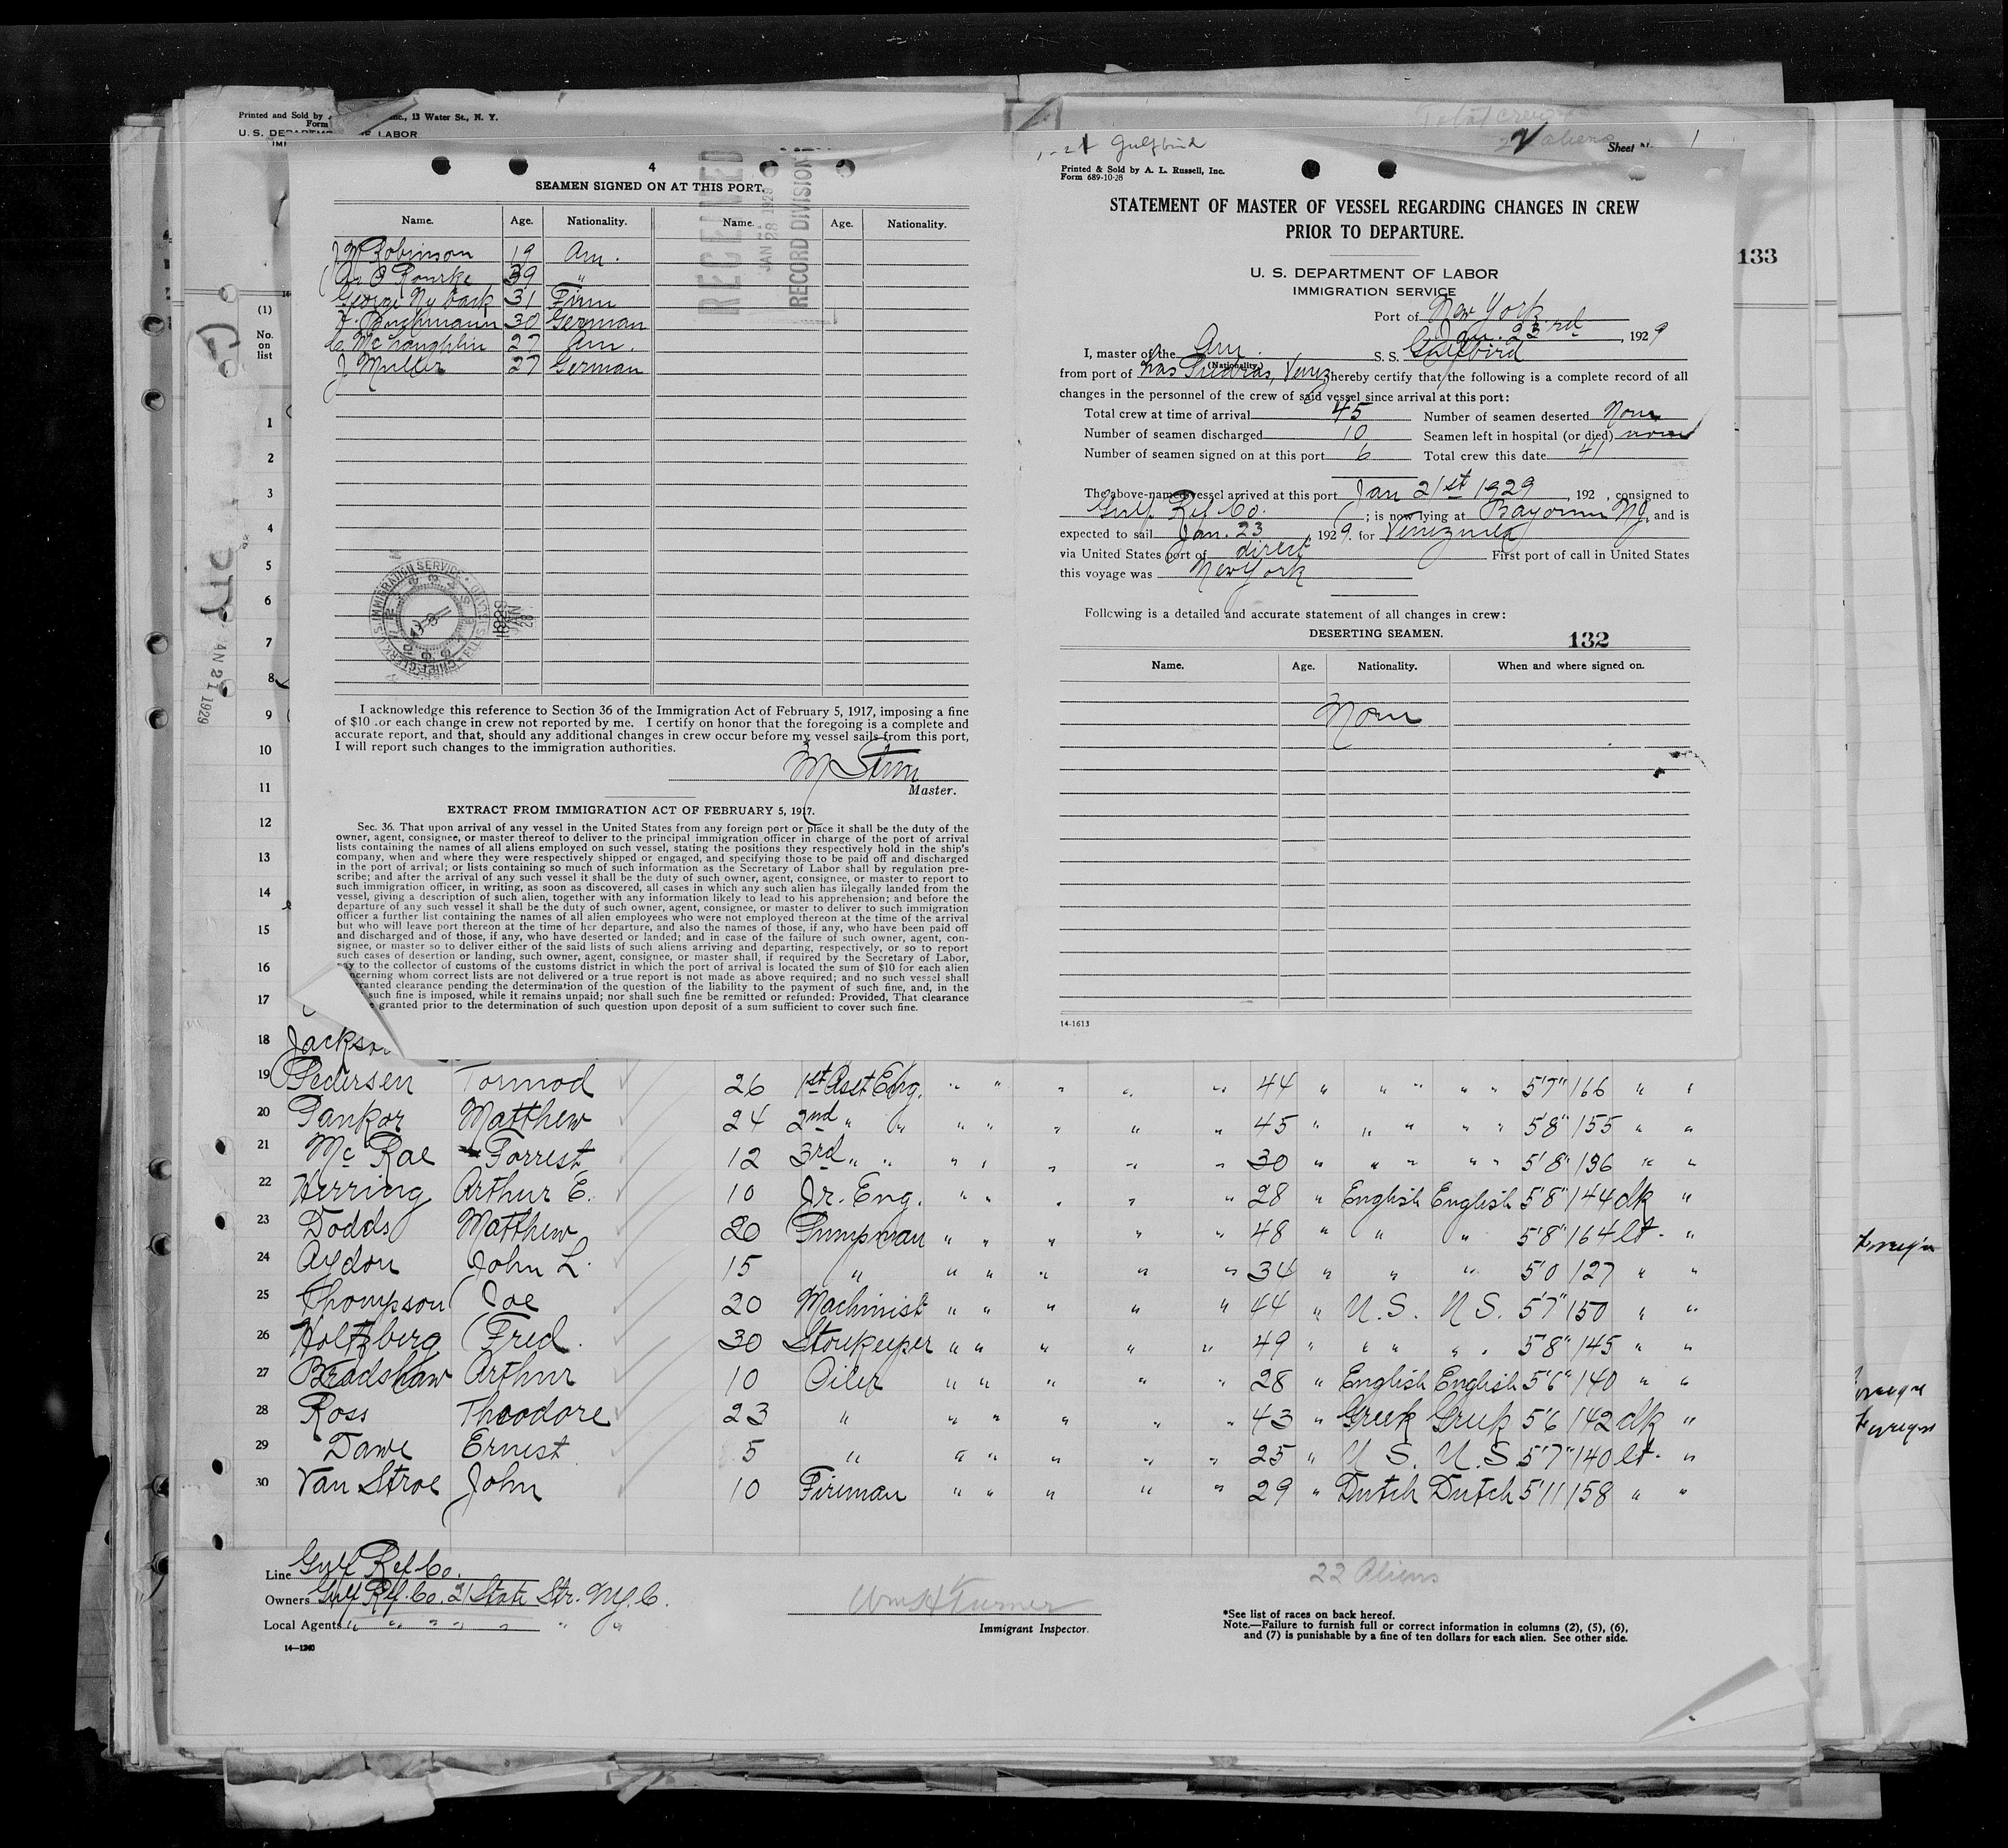 Printed and Sold by
Inc., 13 Water St., N. Y.
Form
U. S. DEPARTM
OF LABOR
4
SEAMEN SIGNED ON AT THIS PORT.
Name. Age. Nationality. Name. Age. Nationality.
RECEIVED
JAN 28 1929
RECORD DIVISION
J M Robinson 19 Am.
O'Rourke 39 "
George Nyback 31 Finn
30 German
C McLaughlin 27 Am.
J Muller 27 German
I acknowledge this reference to Section 36 of the Immigration Act of February 5, 1917, imposing a fine
of $10 .or each change in crew not reported by me. I certify on honor that the foregoing is a complete and
accurate report, and that, should any additional changes in crew occur before my vessel sails from this port,
I will report such changes to the immigration authorities.
Master.
EXTRACT FROM IMMIGRATION ACT OF FEBRUARY 5, 1917.
Sec. 36. That upon arrival of any vessel in the United States from any foreign port or place it shall be the duty of the
owner, agent, consignee, or master thereof to deliver to the principal immigration officer in charge of the port of arrival
lists containing the names of all aliens employed on such vessel, stating the positions they respectively hold in the ship's
company, when and where they were respectively shipped or engaged, and specifying those to be paid off and discharged
in the port of arrival; or lists containing so much of such information as the Secretary of Labor shall by regulation pre-
scribe; and after the arrival of any such vessel it shall be the duty of such owner, agent, consignee, or master to report to
such immigration officer, in writing, as soon as discovered, all cases in which any such alien has illegally landed from the
vessel, giving a description of such alien, together with any information likely to lead to his apprehension; and before the
departure of any such vessel it shall be the duty of such owner, agent, consignee, or master to deliver to such immigration
officer a further list containing the names of all alien employees who were not employed thereon at the time of the arrival
but who will leave port thereon at the time of her departure, and also the names of those, if any, who have been paid off
and discharged and of those, if any, who have deserted or landed; and in case of the failure of such owner, agent, con-
signee, or master so to deliver either of the said lists of such aliens arriving and departing, respectively, or so to report
such cases of desertion or landing, such owner, agent, consignee, or master shall, if required by the Secretary of Labor,
pay to the collector of customs of the customs district in which the port of arrival is located the sum of $10 for each alien
concerning whom correct lists are not delivered or a true report is not made as above required; and no such vessel shall
granted clearance pending the determination of the question of the liability to the payment of such fine, and, in the
such fine is imposed, while it remains unpaid; nor shall such fine be remitted or refunded: Provided, That clearance
granted prior to the determination of such question upon deposit of a sum sufficient to cover such fine.
Gulfbird
Printed & Sold by A. L. Russell, Inc.
Form 689-10-28
Total crew
22 aliens
Sheet No. 1
STATEMENT OF MASTER OF VESSEL REGARDING CHANGES IN CREW
PRIOR TO DEPARTURE.
133
U. S. DEPARTMENT OF LABOR
IMMIGRATION SERVICE
Port of New York
Jan. 23rd, 1929
I, master of the Am. S. S. Gulfbird
(Nationality.)
from port of Las Piedras, Venez hereby certify that the following is a complete record of all
changes in the personnel of the crew of said vessel since arrival at this port:
Total crew at time of arrival 45 Number of seamen deserted None
Number of seamen discharged 10 Seamen left in hospital (or died) none
Number of seamen signed on at this port 6 Total crew this date 41
The above-named vessel arrived at this port Jan 21st 1929, 192 , consigned to
Gulf Ref Co. ; is now lying at Bayonne NJ, and is
expected to sail Jan. 23, 1929. for Venezuela
via United States port of direct First port of call in United States
this voyage was New York
Following is a detailed and accurate statement of all changes in crew:
DESERTING SEAMEN.
132
Name. Age. Nationality. When and where signed on.
None
14-1613
(1)
No.
on
list
1
2
3
4
5
6
7
8
9
10
11
12
13
14
15
16
17
JAN 21 1929
18 Jackson
19 Pedersen Tormod 26 1st Asst Eng. " " " " " 44 " " " " " 5'7" 166 " "
20 Pankor Matthew 24 2nd " " " " " " " 45 " " " " " 5'8" 155 " "
21 McRae Forrest 12 3rd " " " " " " " 30 " " " " " 5'8" 196 " "
22 Herring Arthur E. 10 Jr. Eng. " " " " " 28 " English English 5'8" 144 dk "
23 Dodds Matthew 20 Pumpman " " " " " 48 " " " 5'8" 164 lt. "
24 Aydon John L. 15 " " " " " " 34 " " " 5'0 127 " "
25 Thompson Joe 20 Machinist " " " " " 44 " U.S. U.S. 5'7" 150 " "
26 Holtzberg Fred. 30 Storekeeper " " " " " 49 " " " " " 5'8" 145 " "
27 Bradshaw Arthur 10 Oiler " " " " " 28 " English English 5'6" 140 " "
28 Ross Theodore 23 " " " " " " 43 " Greek Greek 5'6 142 dk "
29 Dawe Ernest 5 " " " " " " 25 " U.S. U.S 5'7" 140 lt. "
30 Van Stroe John 10 Fireman " " " " " 29 " Dutch Dutch 5'11 158 " "
Foreign
Foreign
Foreign
Line Gulf Ref Co.
Owners Gulf Ref. Co. 21 State Str. N.Y.C.
Local Agents " " " " " " "
14-1240
Wm H Turner
Immigrant Inspector.
22 Aliens
*See list of races on back hereof.
Note.—Failure to furnish full or correct information in columns (2), (5), (6),
and (7) is punishable by a fine of ten dollars for each alien. See other side.